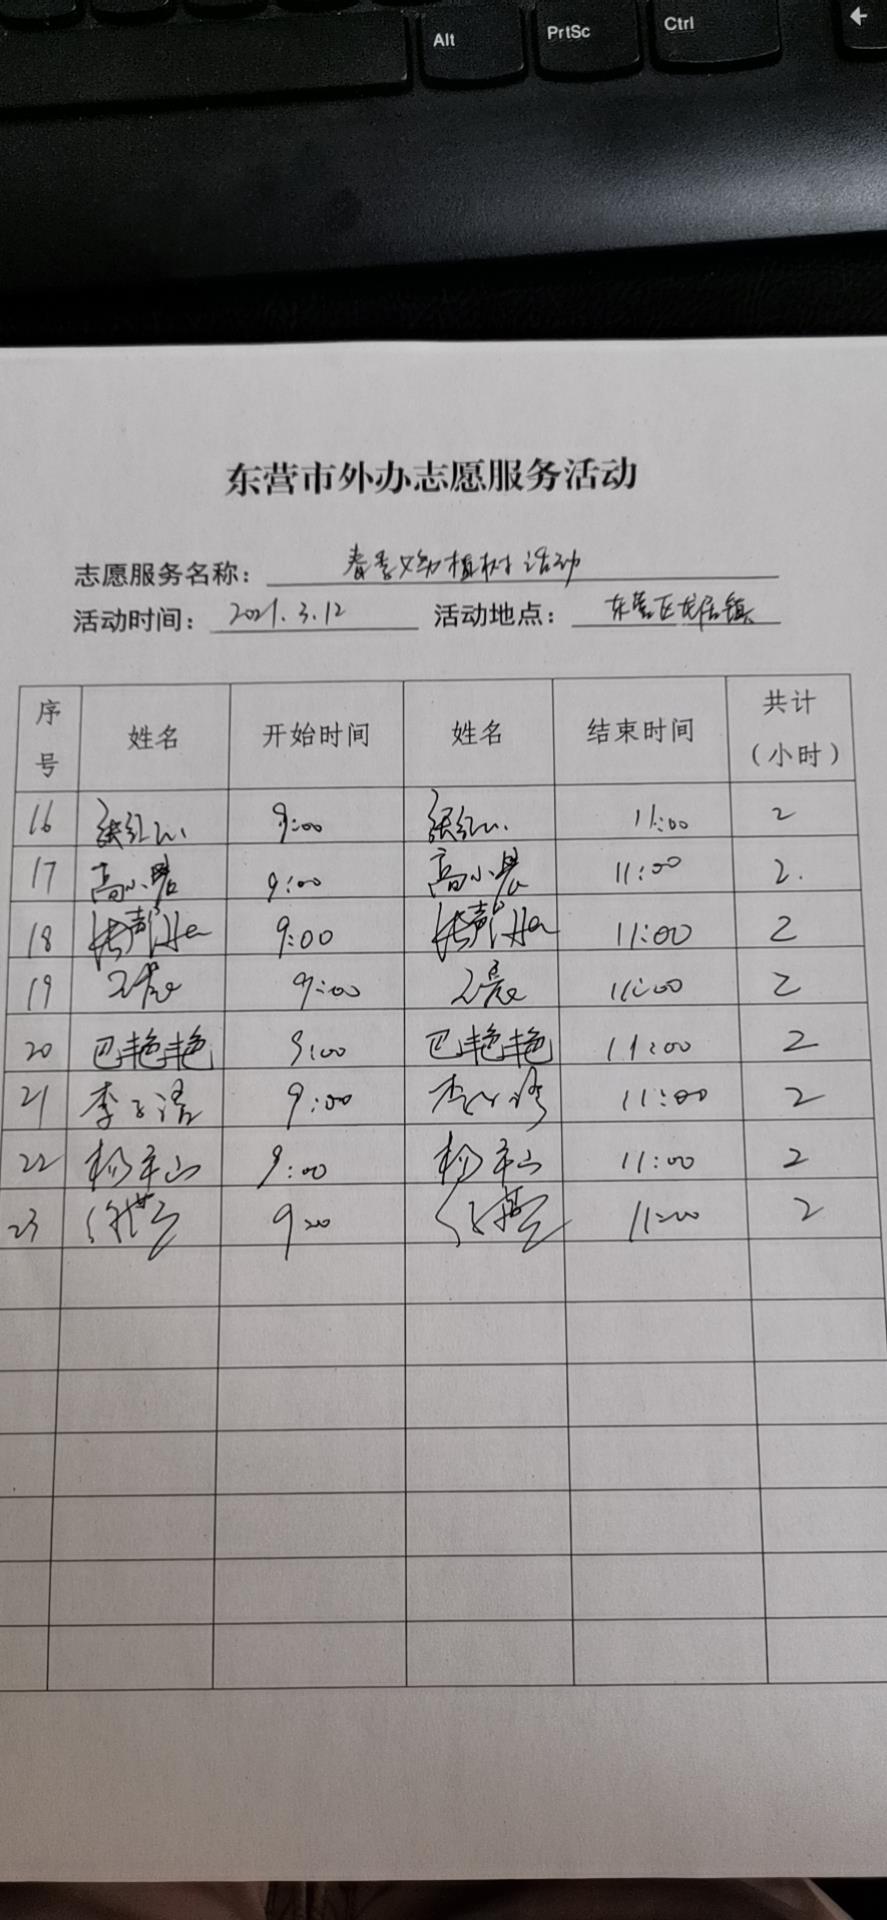 Alt PrtSc Ctrl ←
东营市外办志愿服务活动
志愿服务名称：春季义务植树活动
活动时间：2021.3.12 活动地点：东营区龙居镇
序号 姓名 开始时间 姓名 结束时间 共计（小时）
16 张红 9:00 张红 11:00 2
17 高小 9:00 高小 11:00 2.
18 9:00 11:00 2
19 9:00 11:00 2
20 巴艳艳 9:00 巴艳艳 11:00 2
21 李 9:00 李 11:00 2
22 杨 山 9:00 杨 山 11:00 2
23 9:00 11:00 2